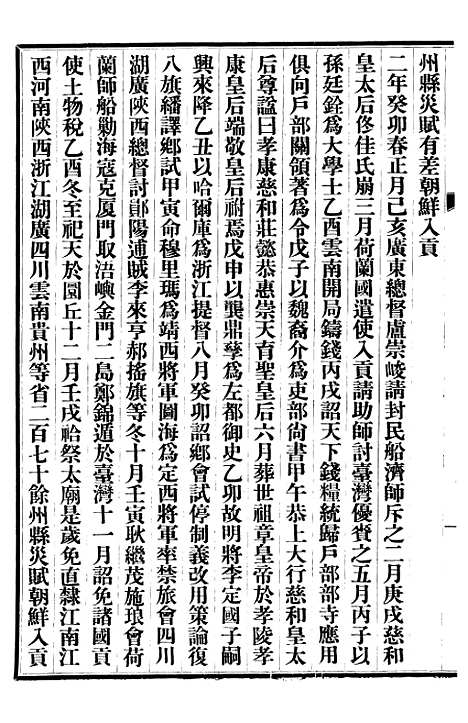 州縣災賦有差朝鮮入貢
二年癸卯春正月己亥廣東總督盧崇峻請封民船濟師斥之二月庚戌慈和
皇太后佟佳氏崩三月荷蘭國遣使入貢請助師討臺灣優賚之五月丙子以
孫廷銓爲大學士乙酉雲南開局鑄錢丙戌詔天下錢糧統歸戶部部寺應用
俱向戶部關領著爲令戊子以魏裔介爲吏部尚書甲午恭上大行慈和皇太
后尊諡曰孝康慈和莊懿恭惠崇天育聖皇后六月葬世祖章皇帝於孝陵孝
康皇后端敬皇后祔焉戊申以龔鼎孳爲左都御史乙卯故明將李定國子嗣
興來降乙丑以哈爾庫爲浙江提督八月癸卯詔鄉會試停制義改用策論復
八旗繙譯鄉試甲寅命穆里瑪爲靖西將軍圖海爲定西將軍率禁旅會四川
湖廣陝西總督討鄖陽逋賊李來亨郝搖旗等冬十月壬寅耿繼茂施琅會荷
蘭師船勦海寇克厦門取浯嶼金門二島鄭錦遁於臺灣十一月詔免諸國貢
使土物稅乙酉冬至祀天於圜丘十二月壬戌祫祭太廟是歲免直隸江南江
西河南陝西浙江湖廣四川雲南貴州等省二百七十餘州縣災賦朝鮮入貢